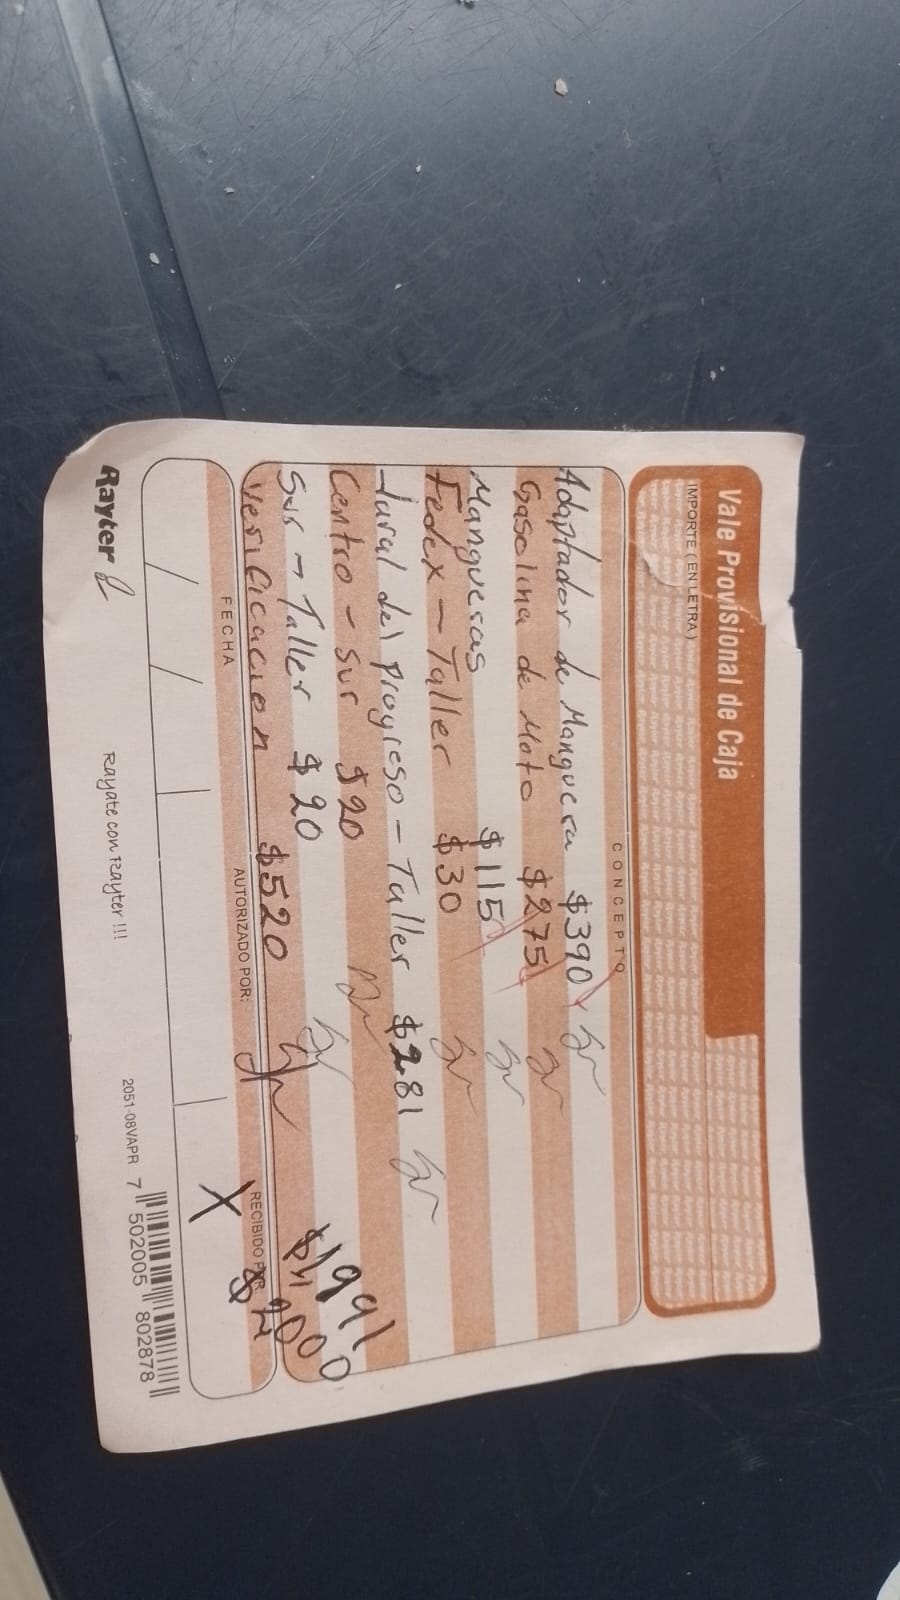 Vale Provisional de Caja
IMPORTE ( EN LETRA )
CONCEPTO
Adaptador de Manguera $390
Gasolina de Moto $275
Mangueras $115
Fedex - Taller $30
Jaral del progreso - Taller $281
Centro - Sur $20
Sur - Taller $20
Verificacion $520
$1,991
$2000
FECHA
AUTORIZADO POR:
RECIBIDO POR:
X
Rayter
Rayate con Rayter !!!
2051-08VAPR
7 502005 802878